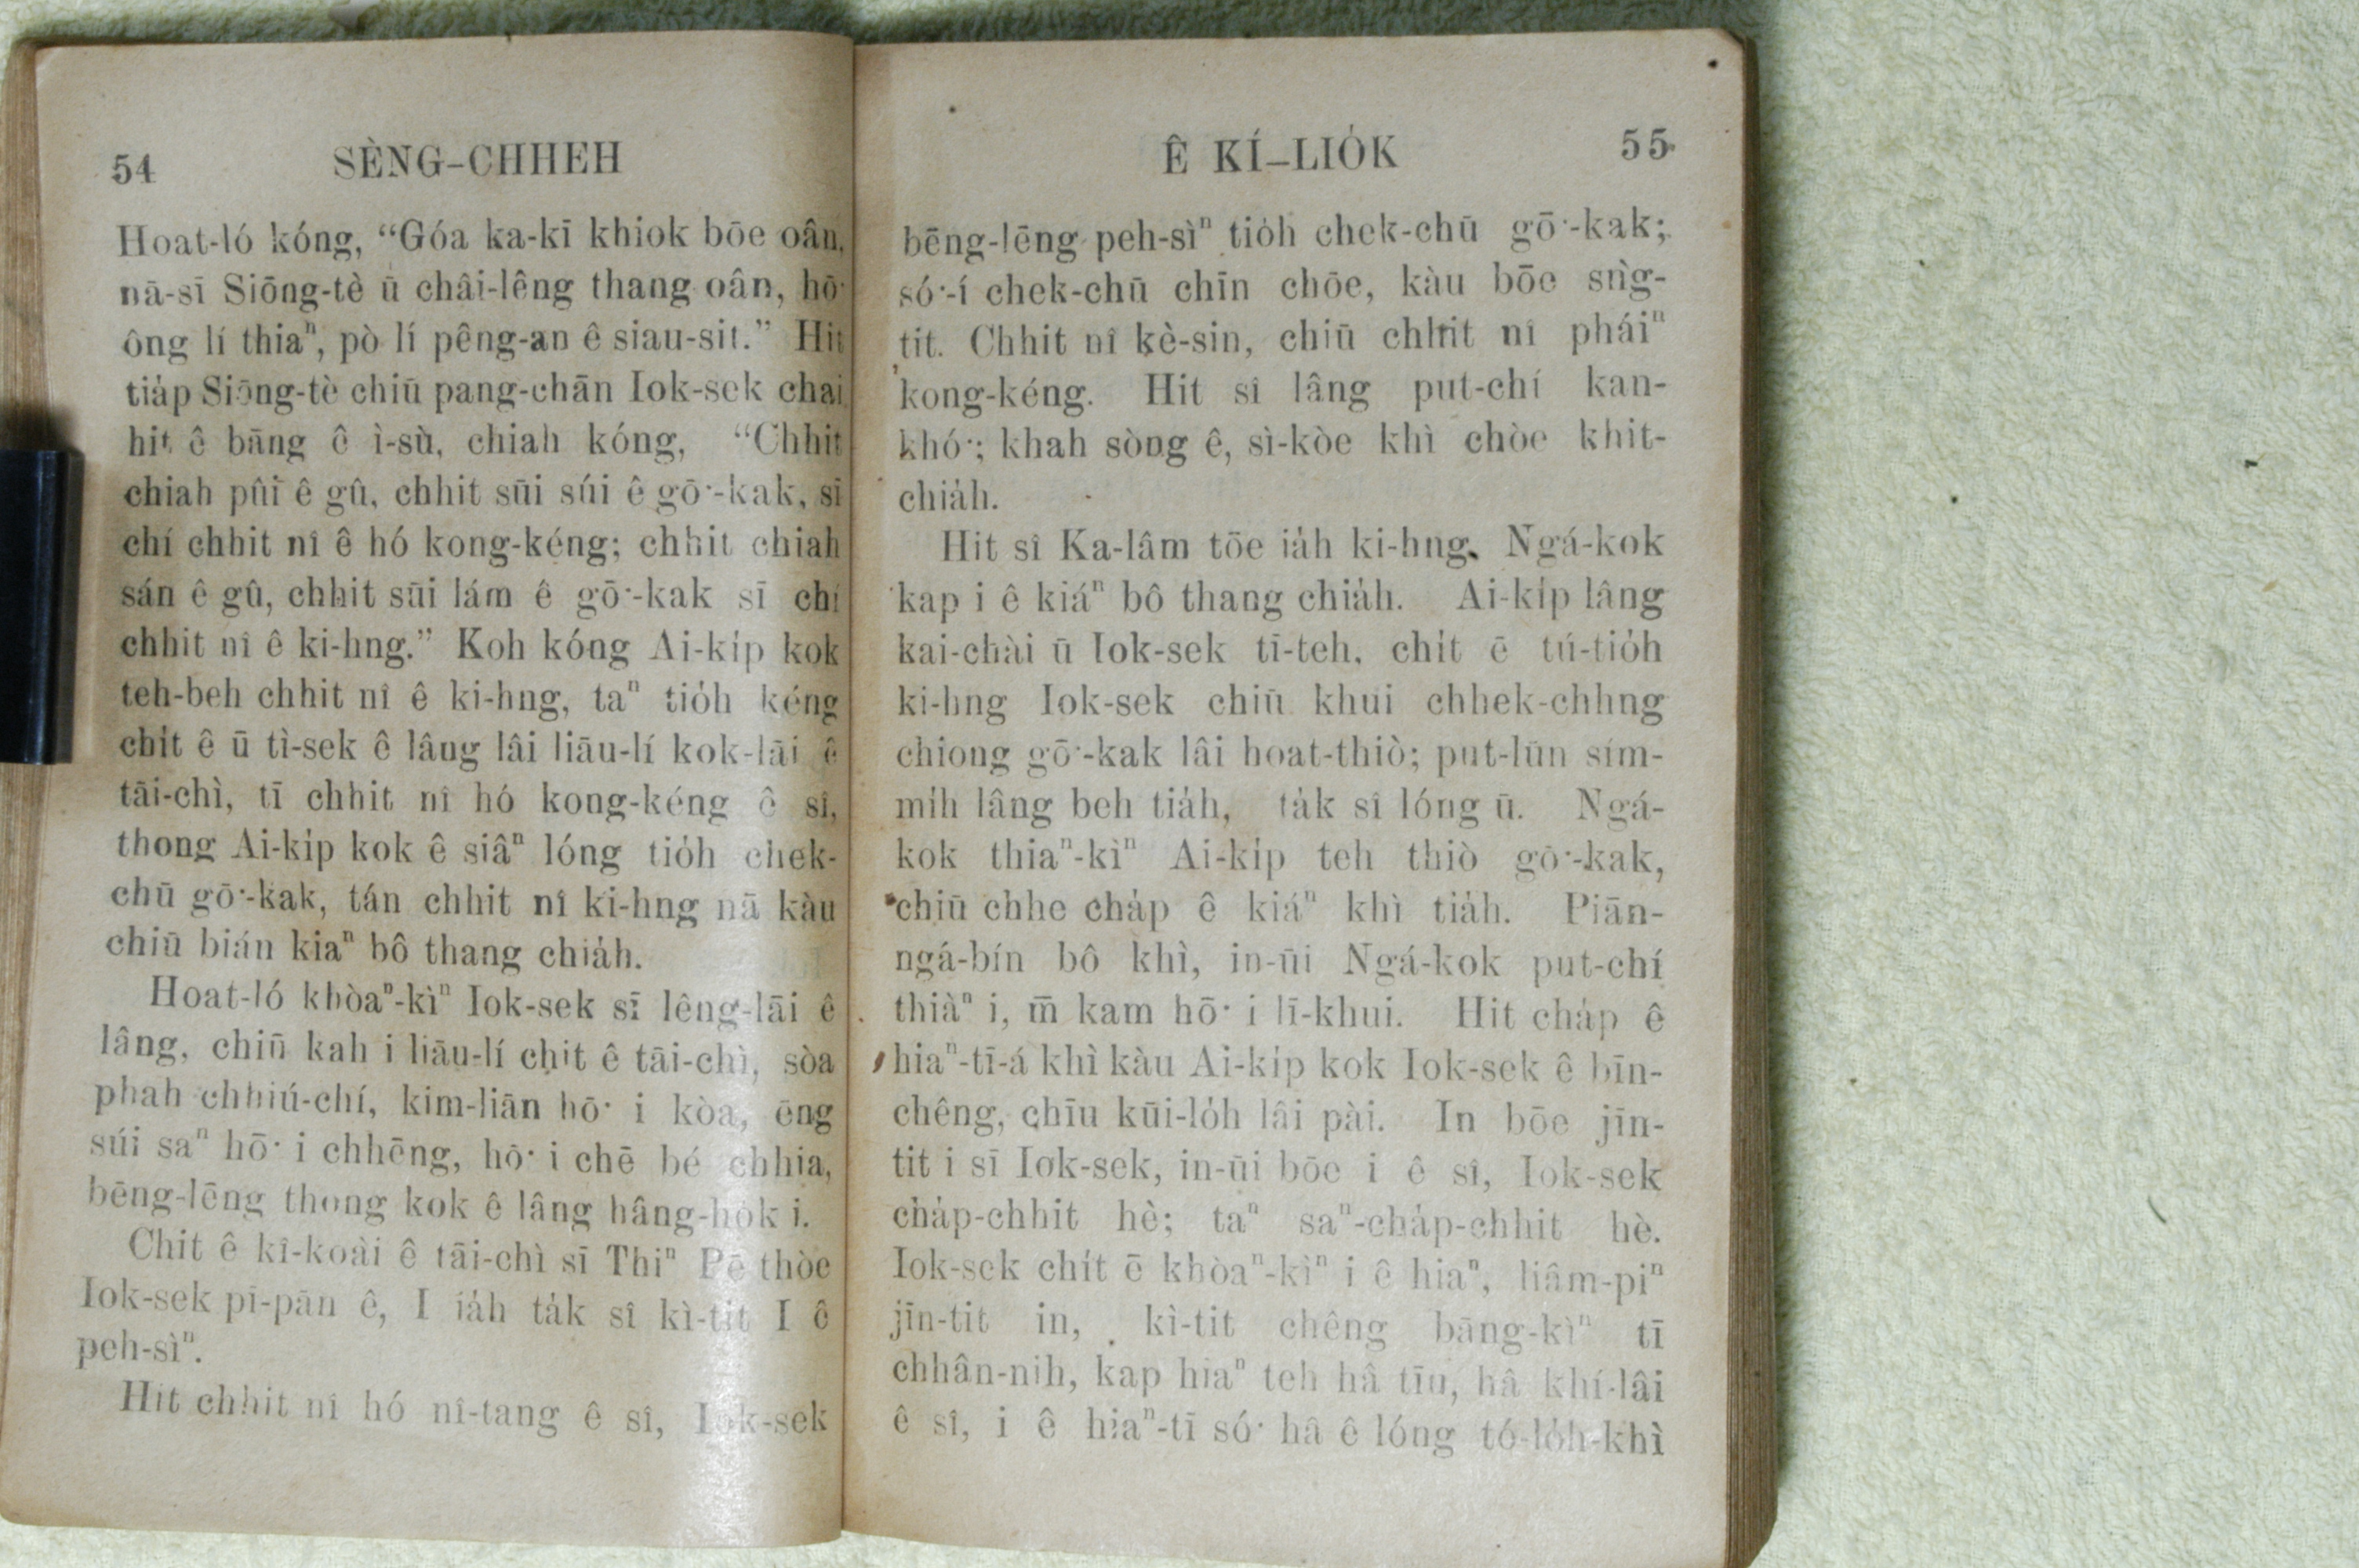 54 SÈNG-CHHEH
Hoat-ló kóng, “Góa ka-kī khiok bōe oân,
nā-sī Siōng-tè ū châi-lêng thang oân, hō͘
ông lí thiaⁿ, pò lí pêng-an ê siau-sit.” Hit
tia̍p Siōng-tè chiū pang-chān Iok-sek chai
hit ê bāng ê ì-sù, chiah kóng, “Chhit
chiah pûi ê gû, chhit sūi súi ê gō͘-kak, sī
chí chhit nî ê hó kong-kéng; chhit chiah
sán ê gû, chhit sūi lám ê gō͘-kak sī chí
chhit nî ê ki-hng.” Koh kóng Ai-ki̍p kok
teh-beh chhit nî ê ki-hng, taⁿ tio̍h kéng
chi̍t ê ū tì-sek ê lâng lâi liāu-lí kok-lāi ê
tāi-chì, tī chhit nî hó kong-kéng ê sî,
thong Ai-ki̍p kok ê siâⁿ lóng tio̍h chek-
chū gō͘-kak, tán chhit nî ki-hng nā kàu
chiū bián kiaⁿ bô thang chia̍h.
Hoat-ló khòaⁿ-kìⁿ Iok-sek sī lêng-lāi ê
lâng, chiū kah i liāu-lí chit ê tāi-chì, sòa
phah chhiú-chí, kim-liān hō͘ i kòa, ēng
súi saⁿ hō͘ i chhēng, hō͘ i chē bé chhia,
bēng-lēng thong kok ê lâng hâng-ho̍k i.
Chit ê kî-koài ê tāi-chì sī Thiⁿ Pē thòe
Iok-sek pī-pān ê, I ia̍h ta̍k sî kì-tit I ê
peh-sìⁿ.
Hit chhit nî hó nî-tang ê sî, Iok-sek
Ê KÍ-LIO̍K 55
bēng-lēng peh-sìⁿ tio̍h chek-chū gō͘-kak;
só͘-í chek-chū chīn chōe, kàu bōe sǹg-
tit. Chhit nî kè-sin, chiū chhit nî pháiⁿ
kong-kéng. Hit sî lâng put-chí kan-
khó͘; khah sòng ê, sì-kòe khì chòe khit-
chia̍h.
Hit sî Ka-lâm tōe ia̍h ki-hng. Ngá-kok
kap i ê kiáⁿ bô thang chia̍h. Ai-ki̍p lâng
kai-chài ū Iok-sek tī-teh, chi̍t ē tú-tio̍h
ki-hng Iok-sek chiū khui chhek-chhng
chiong gō͘-kak lâi hoat-thiò; put-lūn sím-
mi̍h lâng beh tia̍h, ta̍k sî lóng ū. Ngá-
kok thiaⁿ-kìⁿ Ai-ki̍p teh thiò gō͘-kak,
chiū chhe cha̍p ê kiáⁿ khì tia̍h. Piān-
ngá-bín bô khì, in-ūi Ngá-kok put-chí
thiàⁿ i, m̄ kam hō͘ i lī-khui. Hit cha̍p ê
hiaⁿ-tī-á khì kàu Ai-ki̍p kok Iok-sek ê bīn-
chêng, chīu kūi-lo̍h lâi pài. In bōe jīn-
tit i sī Iok-sek, in-ūi bōe i ê sî, Iok-sek
cha̍p-chhit hè; taⁿ saⁿ-cha̍p-chhit hè.
Iok-sek chi̍t ē khòaⁿ-kìⁿ i ê hiaⁿ, liâm-piⁿ
jīn-tit in, kì-tit chêng bāng-kìⁿ tī
chhân-nih, kap hiaⁿ teh hâ tīu, hâ khí-lâi
ê sî, i ê hiaⁿ-tī só͘ hâ ê lóng tó-lo̍h-khì